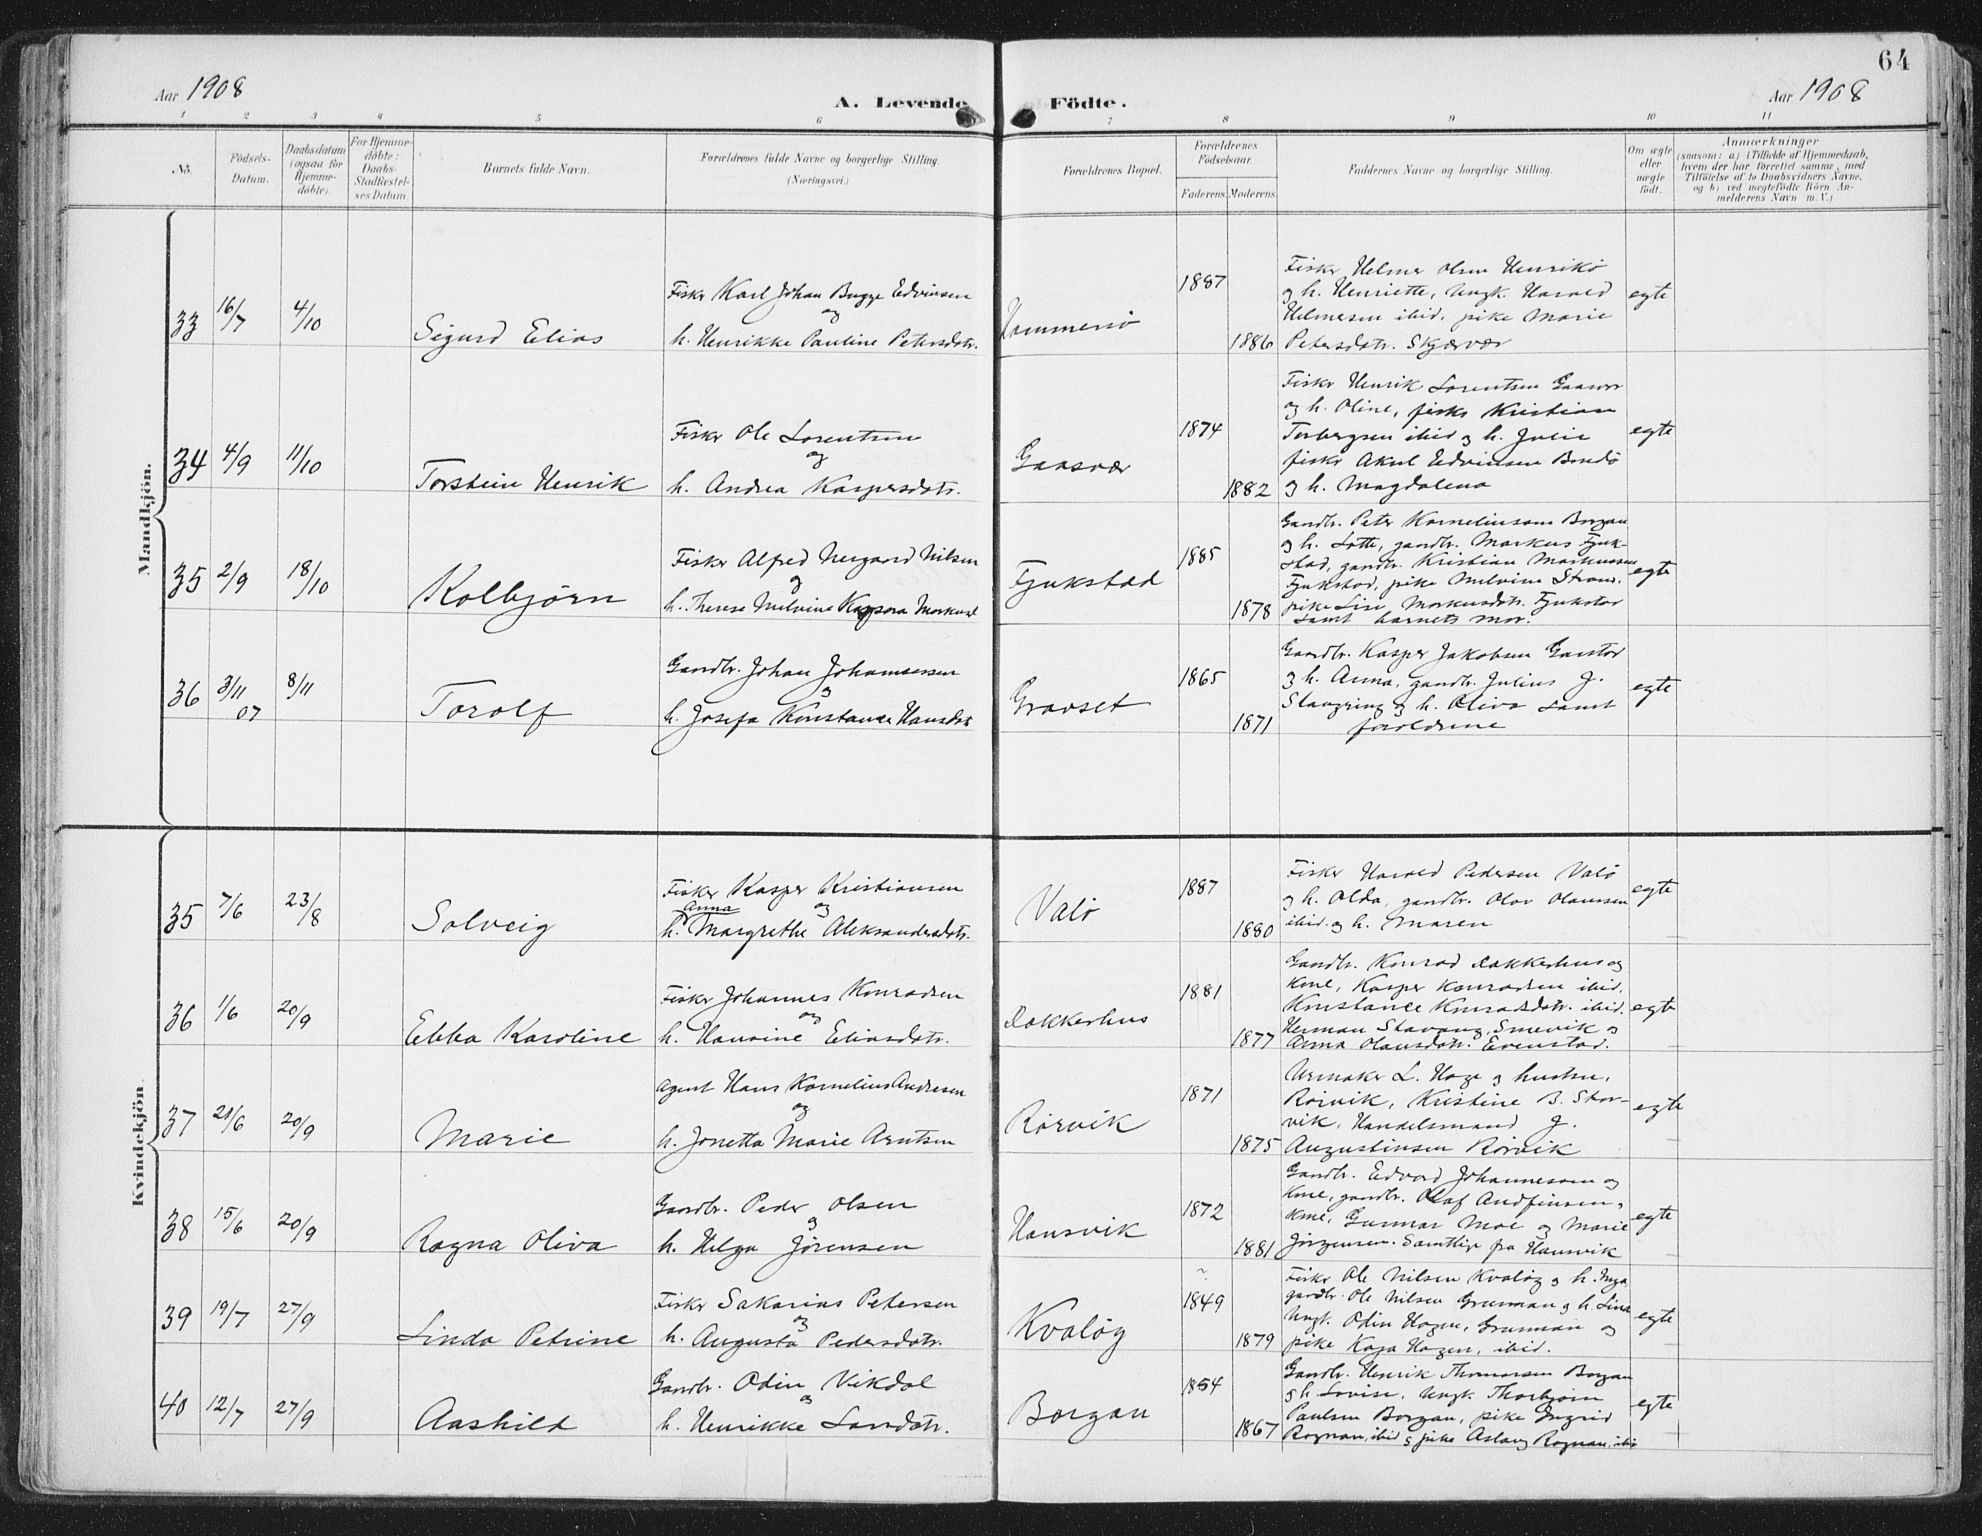 64
Aar 1908
A. Levende
Födte.
Aar 1908
1 2 3 4 5 6 7 8 9 10 11
No.
Födsels-
Datum.
Daabsdatum
(ogsaa for
Hjemme-
döbte).
For Hjemme-
döbte:
Daabs-
Stadfæstel-
ses Datum
Barnets fulde Navn.
Forældrenes fulde Navne og borgerlige Stilling.
(Næringsvei.)
Forældrenes Bopæl.
Forældrenes
Födselsaar.
Faderens.
Moderens.
Faddernes Navne og borgerlige Stilling.
Om ægte
eller
uægte
födt.
Anmærkninger
(saasom: a) i Tilfælde af Hjemmedaab,
hvem der har forrettet samme, med
Tilföielse af to Daabsvidners Navne,
og b) ved uægtefödte Börn An-
melderens Navn m. V.)
Mandkjön.
33 16/7 4/10
Sigurd Elias
Fisker Karl Johan Bugge Edvinsen
og
h. Henrikke Pauline Petersdatr.
Hommersö
1887
1886
Fisker Helmer Olsen Henrikö
og h. Henriette, ungk. Harald
Helmersen ibid, pike Marie
Petersdatr. Skjærvær
egte
34 4/9 11/10
Torstein Henrik
Fisker Ole Lorentsen
og
h. Andrea Kaspersdatr.
Gaasvær
1874
1882
Fisker Henrik Lorentsen Gaasvær
og h. Oline, fisker Kristian
Torbergsen ibid og h. Julie
fisker Aksel Edvinsen Bondö
og h. Magdalena
egte
35 2/9 18/10
Kolbjörn
Fisker Alfred Nergaard Nilsen
og
h. Therese Melvine Kaspara Markusd
Fjukstad
1885
1878
Gaardbr. Peter Korneliussen Borgan
og h. Lotte, gaardbr. Markus Fjuk-
stad, gaardbr. Kristian Markussen
Fjukstad, pike Melvine Strand.
pike Lise Markusdatr. Fjukstad
samt barnets mor.
egte
36 3/11 07 8/11
Torolf
Gaardbr. Johan Johannessen
og
h. Josefa Konstance Hansdtr
Gravset
1865
1871
Gaardbr. Kasper Jakobsen Garstad
og h. Anna, gaardbr. Julius J.
Slangring og h. Oliva samt
forældrene
egte
Kvindekjön.
35 7/6 23/8
Solveig
Fisker Kasper Kristiansen
Anna og
h. Margrethe Aleksandersdatr.
Valö
1887
1880
Fisker Harald Pedersen Valö
og h. Alda, gaardbr. Olav Olaussen
ibid. og h. Maren
egte
36 1/6 20/9
Ebba Karoline
Fisker Johannes Konradsen
og
h. Hansine Eliasdatr.
Lakkerhus
1881
1877
Gaardbr. Konrad Lakkerhus og
kone, Kasper Konradsen ibid.
Konstance Konradsdatr. ibid.
Herman Stavang, Smevik og
Anna Olausdatr. Evenstad.
egte
37 21/6 20/9
Marie
Agent Hans Kornelius Andresen
og
h. Jonetta Marie Arntsen
Rörvik
1871
1875
Urmaker L. Hage og hustru,
Rörvik, Kristine B. Stor-
vik, Handelsmand J.
Augustinsen Rörvik
egte
38 15/6 20/9
Ragna Oliva
Gaardbr. Peder Olsen
og
h. Helga Jörensen
Hansvik
1872
1881
Gaardbr. Edvard Johannessen og
kone, gaardbr. Olaf Andfinsen,
kone, Gunnar Moe og Marie
Jörgensen. Samtlige fra Hansvik
egte
39 19/7 27/9
Linda Petrine
Fisker Sakarias Petersen
og
h. Augusta Pedersdatr.
Kvalöy
1849
1879
Fisker Ole Nilsen Kvalöy og h. Inga
gaardbr. Ole Nilsen Grunnan og h. Lina
Ungk. Odin Hagen, Grunnan og
pike Kaja Hagen, ibid.
egte
40 12/7 27/9
Aashild
Gaardbr. Odin Vikdal
og
h. Henrikke Larsdatr.
Borgan
1854
1867
Gaardbr. Henrik Thomassen Borgan
og h. Lovise, Ungk. Thorbjörn
Paulsen Borgan, pike Ingrid
Rognan, ibid og pike Aslaug Rognan, ibid
egte